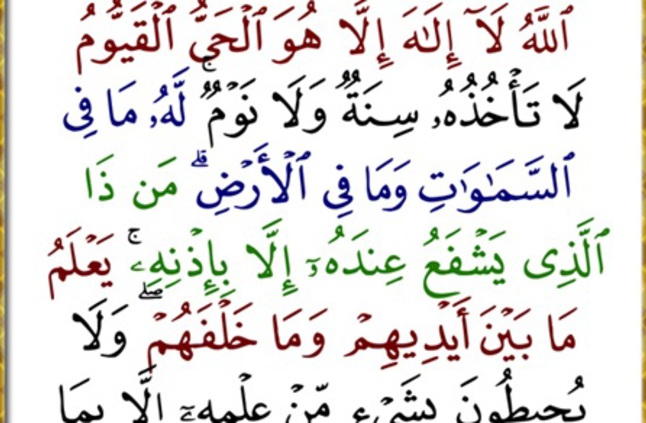 ٱللَّهُ لَآ إِلَـٰهَ إِلَّا هُوَ ٱلْحَىُّ ٱلْقَيُّومُ
لَا تَأْخُذُهُۥ سِنَةٌ وَلَا نَوْمٌ ۚ لَّهُۥ مَا فِى
ٱلسَّمَـٰوَٰتِ وَمَا فِى ٱلْأَرْضِ ۗ مَن ذَا
ٱلَّذِى يَشْفَعُ عِندَهُۥٓ إِلَّا بِإِذْنِهِۦ ۚ يَعْلَمُ
مَا بَيْنَ أَيْدِيهِمْ وَمَا خَلْفَهُمْ ۖ وَلَا
يُحِيطُونَ بِشَىْءٍ مِّنْ عِلْمِهِۦٓ إِلَّا بِمَا